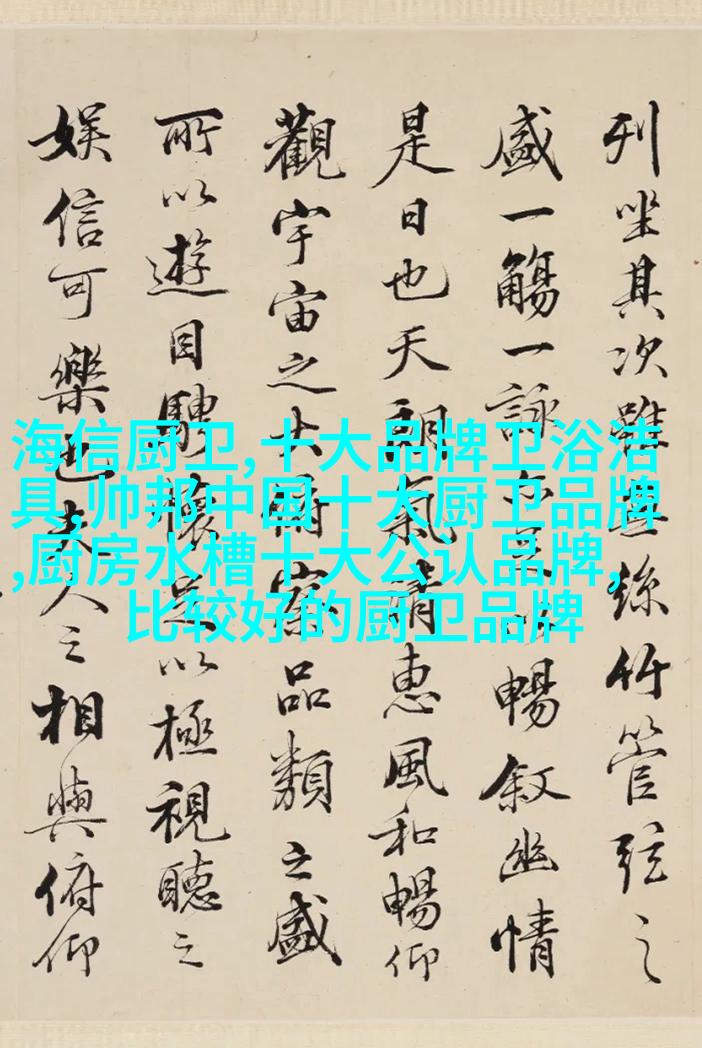 海信厨卫,十大品牌卫浴洁
具,帅邦中国十大厨卫品牌
,厨房水槽十大公认品牌,
比较好的厨卫品牌
列坐其次雖無絲竹管弦之
盛一觴一詠亦足以暢叙幽情
是日也天朗氣清惠風和暢仰
觀宇宙之大俯察品類之盛
所以遊目騁懷足以極視聽之
娛信可樂也夫人之相與俯仰